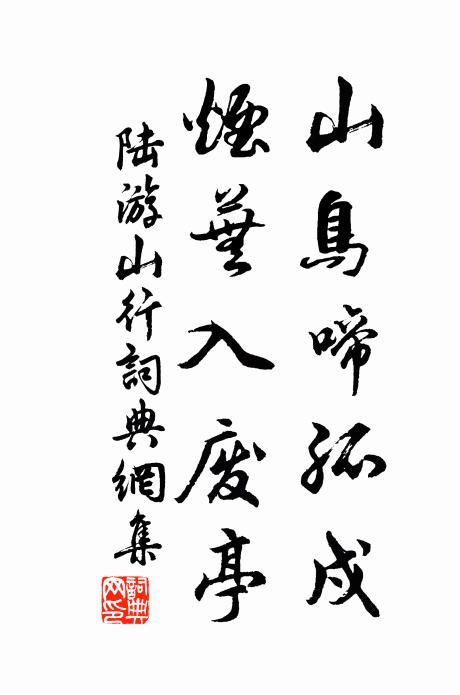 山鳥啼孤戍
煙蕪入废亭
陆游山行詞典網集
詞典网印